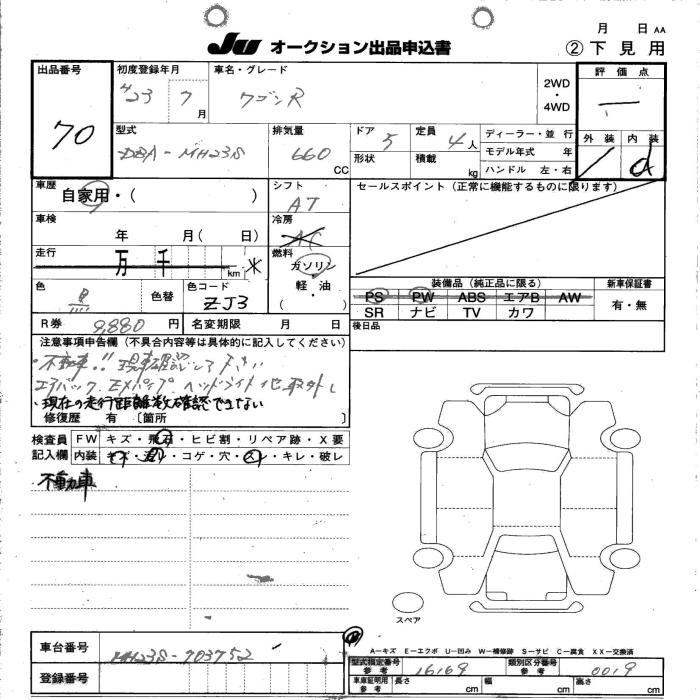 JU オークション出品申込書
月 日 AA
② 下見用
出品番号 70
初度登録年月 H23 7月
車名・グレード ワゴンR
2WD・4WD
評価点 一
外装 内装 d
型式 DBA-MH23S
排気量 660 CC
ドア 5 定員 4人
形状 積載 kg
ディーラー・並行
モデル年式 年
ハンドル 左・右
車歴 自家用・( )
シフト AT
セールスポイント(正常に機能するものに限ります)
車検 年 月( 日)
冷房 AC
走行 万 千 km ※
燃料 ガソリン・軽油・( )
色 色替 色コード ZJ3
装備品(純正品に限る) 新車保証書
PS PW ABS エアB AW
SR ナビ TV カワ
有・無
R券 9,880円 名変期限 月 日
後日品
注意事項申告欄(不具合内容等は具体的に記入してください)
不動車!! 現車確認して下さい
エアバック, EXパイプ, ヘッドライト 他 取外し
現在の走行距離数確認できない
修復歴 有 〔箇所 〕
検査員記入欄
FW キズ・飛石・ヒビ割・リペア跡・X要
内装 キズ・汚れ・コゲ・穴・スレ・キレ・破レ
不動車
スペア
車台番号 MH23S-703752
登録番号
A-キズ E-エクボ U-凹み W-補修跡 S-サビ C-腐食 XX-交換済
型式指定番号 参考 16169 類別区分番号 参考 0019
車庫証明用 参考 長さ cm 幅 cm 高さ cm